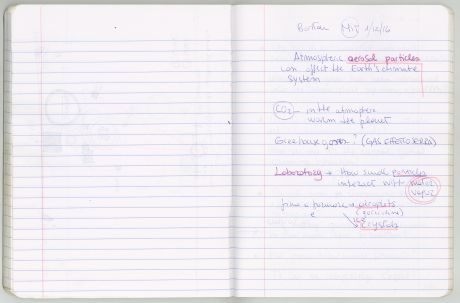 Boston MIT 1/12/16
Atmospheric aerosol particles
can affect the Earth's climate
system
CO2 in the atmosphere
warm the planet
Greenhouse (GAS EFFETTO SERRA)
Laboratory → How small particles
interact with water
vapor
droplets
ice
crystals